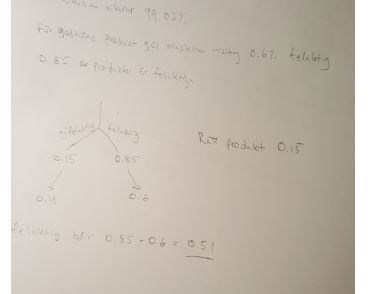 klarar 99.03%.
För godkänd produkt gör maskinen 0.6% felaktig
0.85 av produkter är felaktiga
ej felaktig felaktig
0.15 0.85
Rätt produkt 0.15
0.4 0.6
felaktig blir 0.85 · 0.6 = 0.51